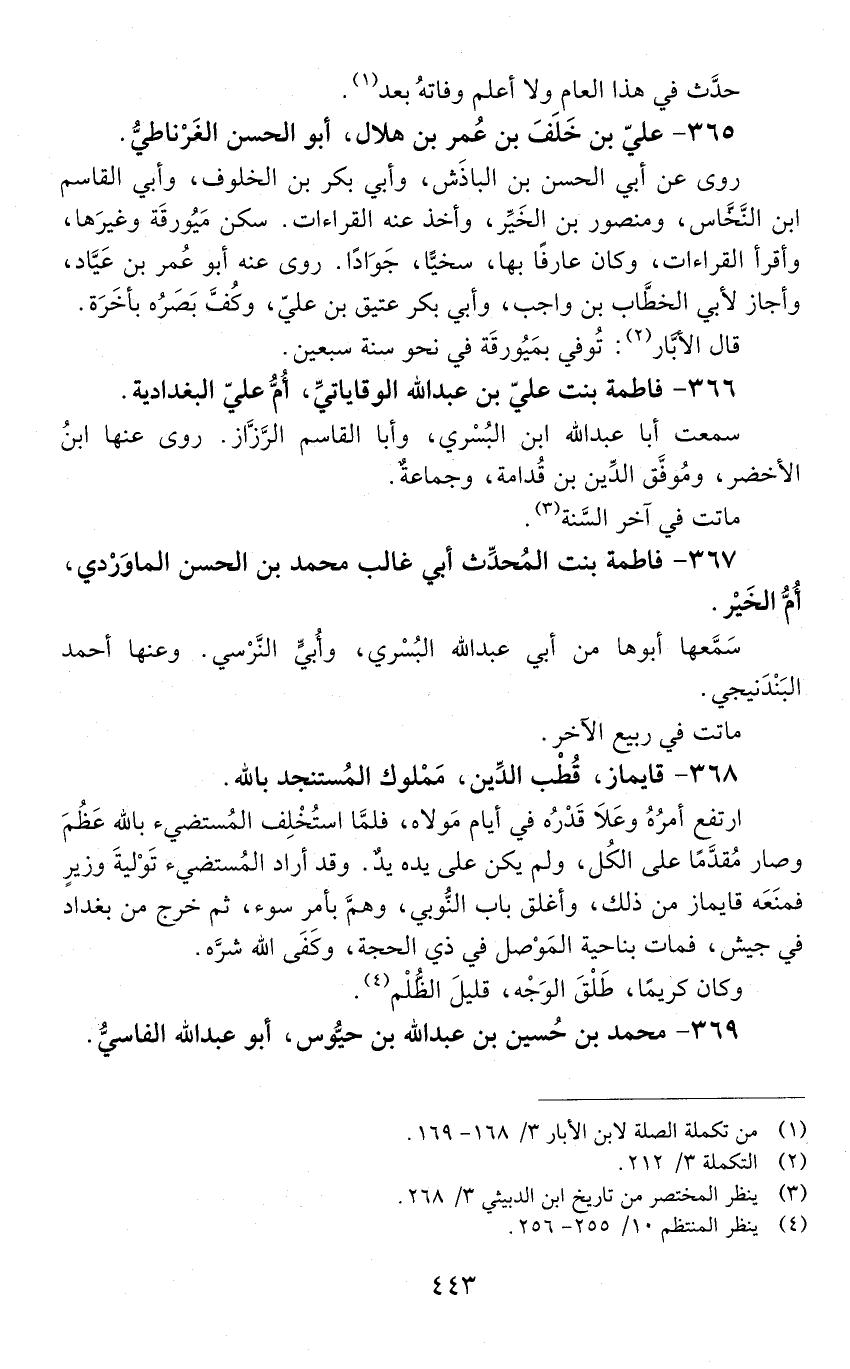 حدَّث في هذا العام ولا أعلم وفاتهُ بعد(١).
٣٦٥- عليّ بن خَلَفَ بن عُمر بن هلال، أبو الحسن الغَرْناطيُّ.
روى عن أبي الحسن بن الباذَش، وأبي بكر بن الخلوف، وأبي القاسم
ابن النَّخَّاس، ومنصور بن الخَيِّر، وأخذ عنه القراءات. سكن مَيُورقَة وغيرَها،
وأقرأ القراءات، وكان عارفًا بها، سخيًّا، جَوَادًا. روى عنه أبو عُمر بن عَيَّاد،
وأجاز لأبي الخطَّاب بن واجب، وأبي بكر عتيق بن عليّ، وكُفَّ بَصَرُه بأخَرَة.
قال الأبَّار(٢): تُوفي بمَيُورقَة في نحو سنة سبعين.
٣٦٦- فاطمة بنت عليّ بن عبدالله الوقاياتيِّ، أُمُّ عليّ البغدادية.
سمعت أبا عبدالله ابن البُسْري، وأبا القاسم الرَّزَّاز. روى عنها ابنُ
الأخضر، ومُوفَّق الدِّين بن قُدامة، وجماعةٌ.
ماتت في آخر السَّنة(٣).
٣٦٧- فاطمة بنت المُحدِّث أبي غالب محمد بن الحسن الماوَرْدي،
أُمُّ الخَيْر.
سَمَّعها أبوها من أبي عبدالله البُسْري، وأُبيٍّ النَّرْسي. وعنها أحمد
البَنْدَنيجي.
ماتت في ربيع الآخر.
٣٦٨- قايماز، قُطْب الدِّين، مَمْلوك المُستنجد بالله.
ارتفع أمرُهُ وعَلاَ قَدْرُه في أيام مَولاه، فلمَّا استُخْلِف المُستضيء بالله عَظُمَ
وصار مُقدَّمًا على الكُل، ولم يكن على يده يدٌ. وقد أراد المُستضيء تَوْليةَ وزيرٍ
فمنَعَه قايماز من ذلك، وأغلق باب النُّوبي، وهمَّ بأمر سوء، ثم خرج من بغداد
في جيش، فمات بناحية المَوْصل في ذي الحجة، وكَفَى الله شرَّه.
وكان كريمًا، طَلْقَ الوَجْه، قليلَ الظُّلْم(٤).
٣٦٩- محمد بن حُسين بن عبدالله بن حيُّوس، أبو عبدالله الفاسيُّ.
(١) من تكملة الصلة لابن الأبار ٣/ ١٦٨- ١٦٩.
(٢) التكملة ٣/ ٢١٢.
(٣) ينظر المختصر من تاريخ ابن الدبيثي ٣/ ٢٦٨.
(٤) ينظر المنتظم ١٠/ ٢٥٥- ٢٥٦.
٤٤٣